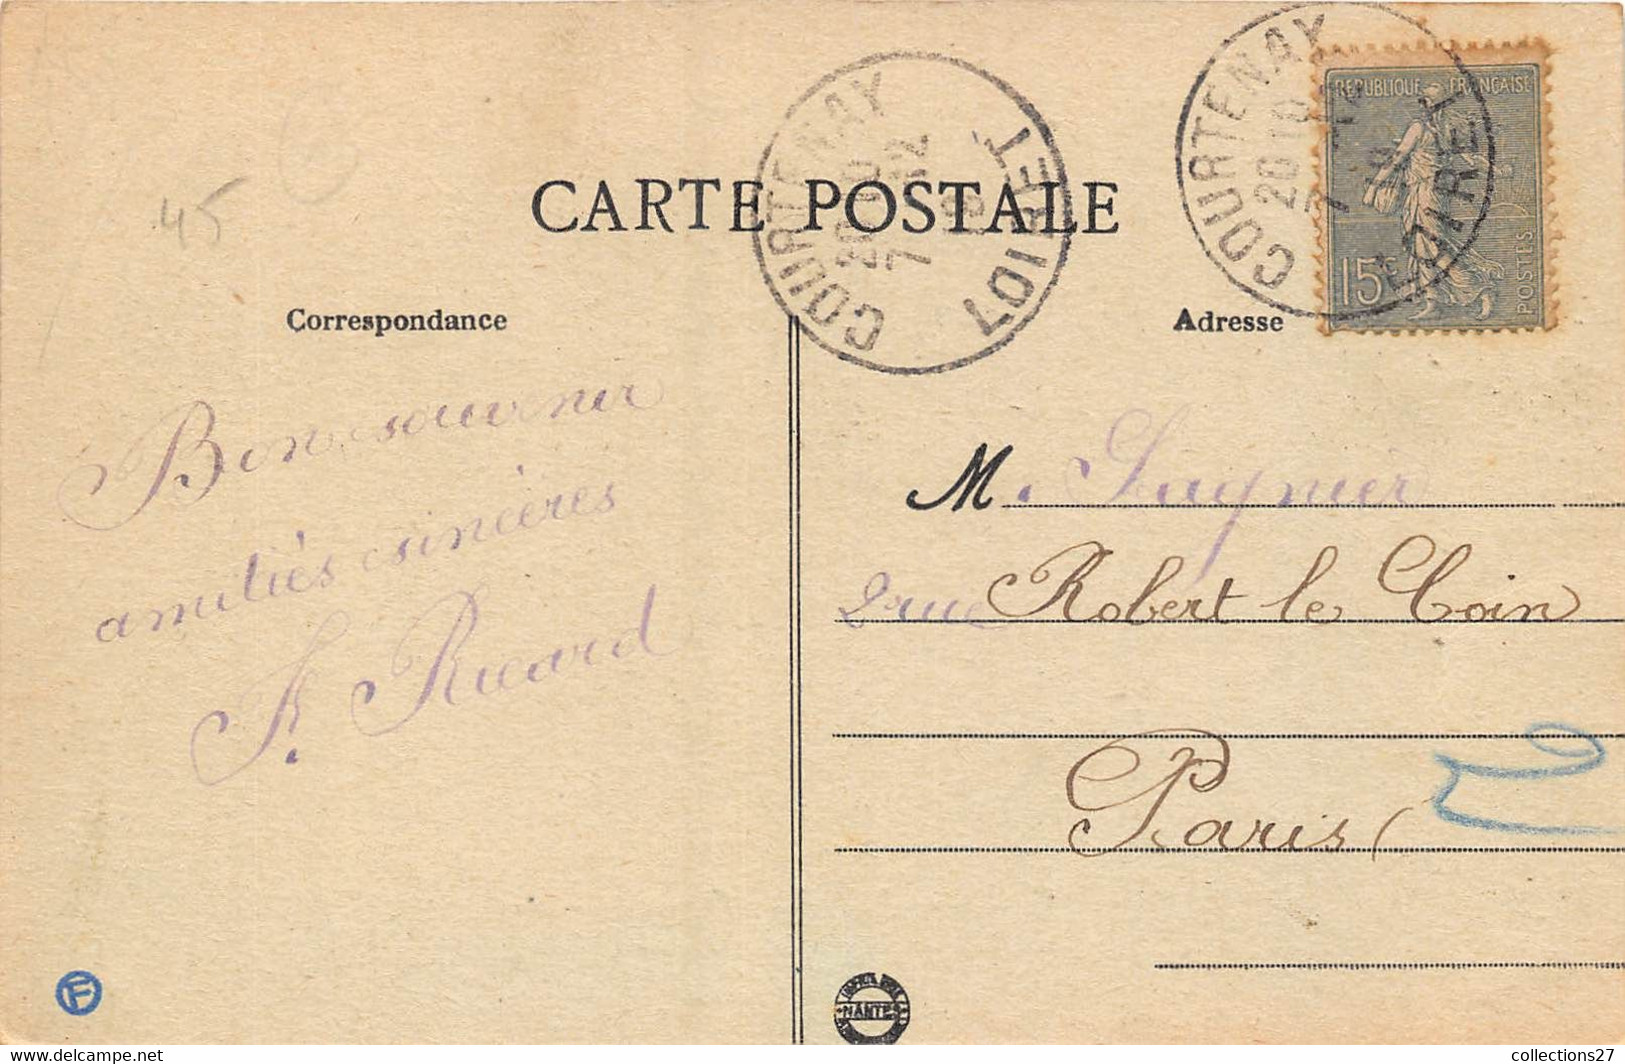 45
CARTE POSTALE
COURTENAY
20 10
7 - 12
LOIRET
COURTENAY
26 10
7
LOIRET
REPUBLIQUE FRANÇAISE
15c
POSTES
Correspondance
Adresse
Bon souvenir
amitiés sincères
F. Ricard
M. Lagnier
2 rue Robert le Coin
Paris
F
NANTES
collections27